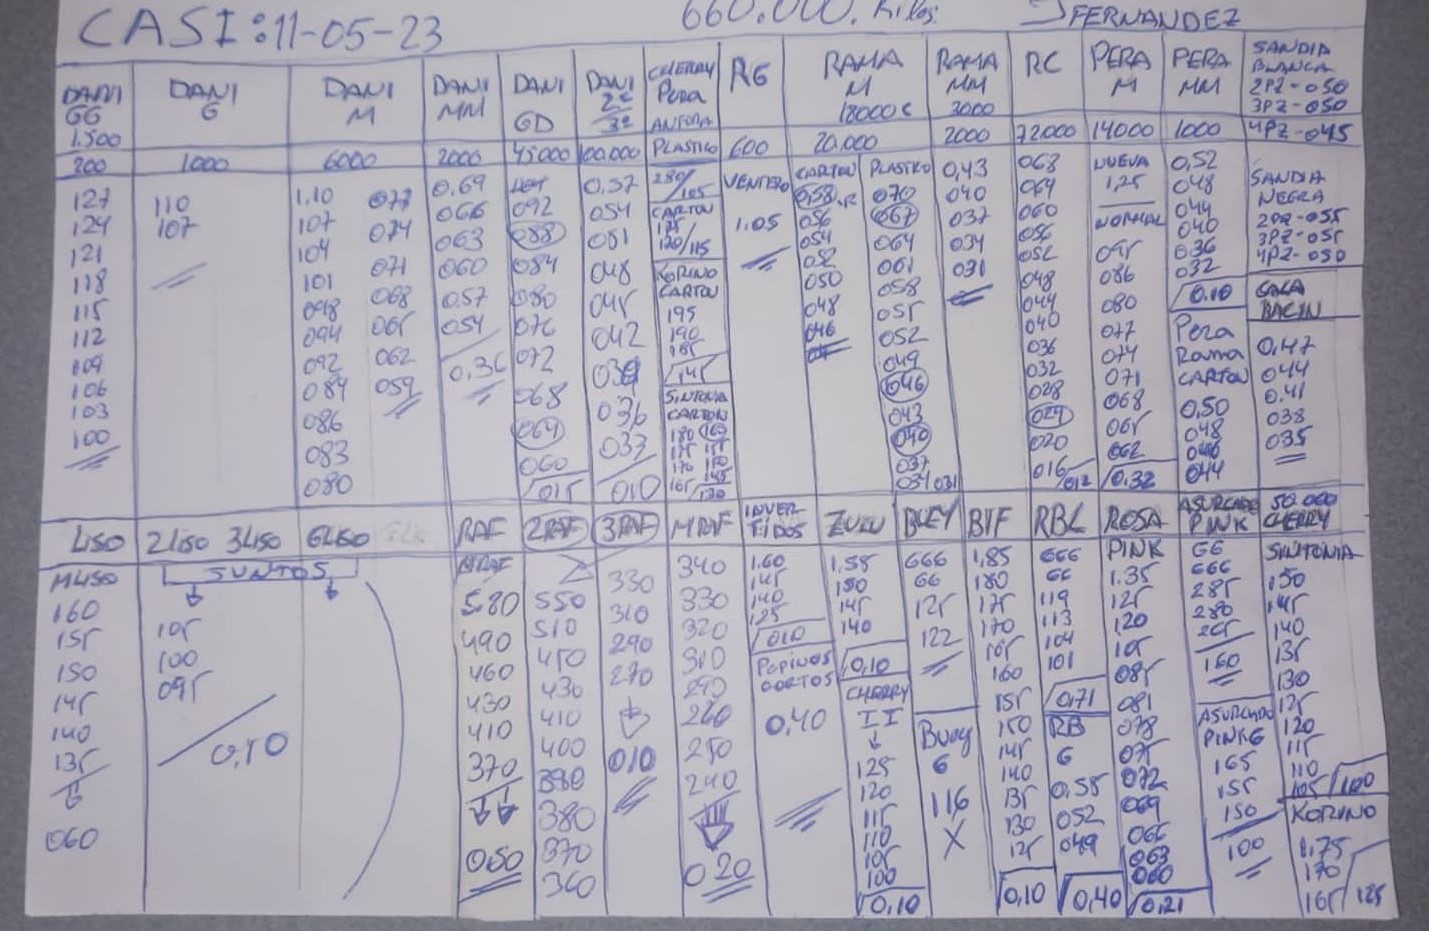 CASI: 11-05-23
660.000. Kilos.
J FERNANDEZ
DANI GG
1.500
200
127
124
121
118
115
112
109
106
103
100
DANI G
1000
110
107
DANI M
6000
1.10
107
104
101
098
094
092
089
086
083
080
077
074
071
068
065
062
059
DANI MM
2000
0.69
066
063
060
0.57
054
0.36
DANI GD
45000
092
088
084
080
076
072
068
064
060
015
DANI 2ª/3ª
100.000
0.57
054
051
048
045
042
039
036
033
010
CHERRY
Pera
ANFORA
PLASTICO
280/105
CARTON
125
120/115
KORINO
CARTON
195
190
185
145
SINTONIA
CARTON
180 160
175 155
170 150
165 145
130
RG
600
VENTERO
1.05
RAMA M
18000 C
20.000
CARTON
0,58
056
054
052
050
048
046
PLASTICO
070
067
064
061
058
055
052
049
046
043
040
037
034 031
RAMA MM
3000
2000
0,43
040
037
034
031
RC
72.000
068
064
060
056
052
048
044
040
036
032
028
024
020
016/012
PERA M
14000
NUEVA
1,25
NORMAL
095
086
080
077
074
071
068
065
062
0.32
PERA MM
1000
0,52
048
044
040
036
032
0.10
Pera
Rama
CARTON
0,50
048
046
044
SANDIA
BLANCA
2PZ-050
3PZ-050
4PZ-045
SANDIA
NEGRA
2PZ-055
3PZ-055
4PZ-050
CALA
BACIN
0,47
044
0.41
038
035
LISO
MLISO
160
155
150
145
140
135
060
2LISO 3LISO 6LISO
JUNTOS
105
100
095
0,10
RAF
580
490
460
430
410
370
050
2RAF
550
510
450
430
410
400
390
380
370
360
3RAF
330
310
290
270
010
MRAF
340
330
320
310
290
260
250
240
020
INVER
TIDOS
1.60
145
140
125
010
Pepinos
CORTOS
0,40
ZULU
1,55
150
145
140
0,10
CHERRY
II
125
120
115
110
105
100
0,10
BUEY
GGG
GG
125
122
Buey
G
116
X
BTF
1,85
180
175
170
165
160
155
150
145
140
135
130
125
0,10
RBL
GGG
GG
119
113
104
101
0,71
RB
G
0,55
052
049
0,40
ROSA
PINK
1.35
125
120
105
085
081
078
075
072
069
066
063
060
0,21
ASURCADO
PINK
GG
GGG
285
280
265
160
ASURCADO
PINK G
165
155
150
100
50.000
CHERRY
SINTONIA
150
145
140
135
130
125
120
115
110
105/100
KORINO
1,75
170
165/125